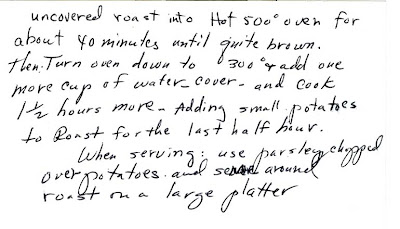 uncovered roast into Hot 500° oven for
about 40 minutes until quite brown.
then Turn oven down to 300° & add one
more cup of water - cover - and cook
1½ hours more - Adding small potatoes
to Roast for the last half hour.
When serving: use parsley chopped
over potatoes and around
roast on a large platter